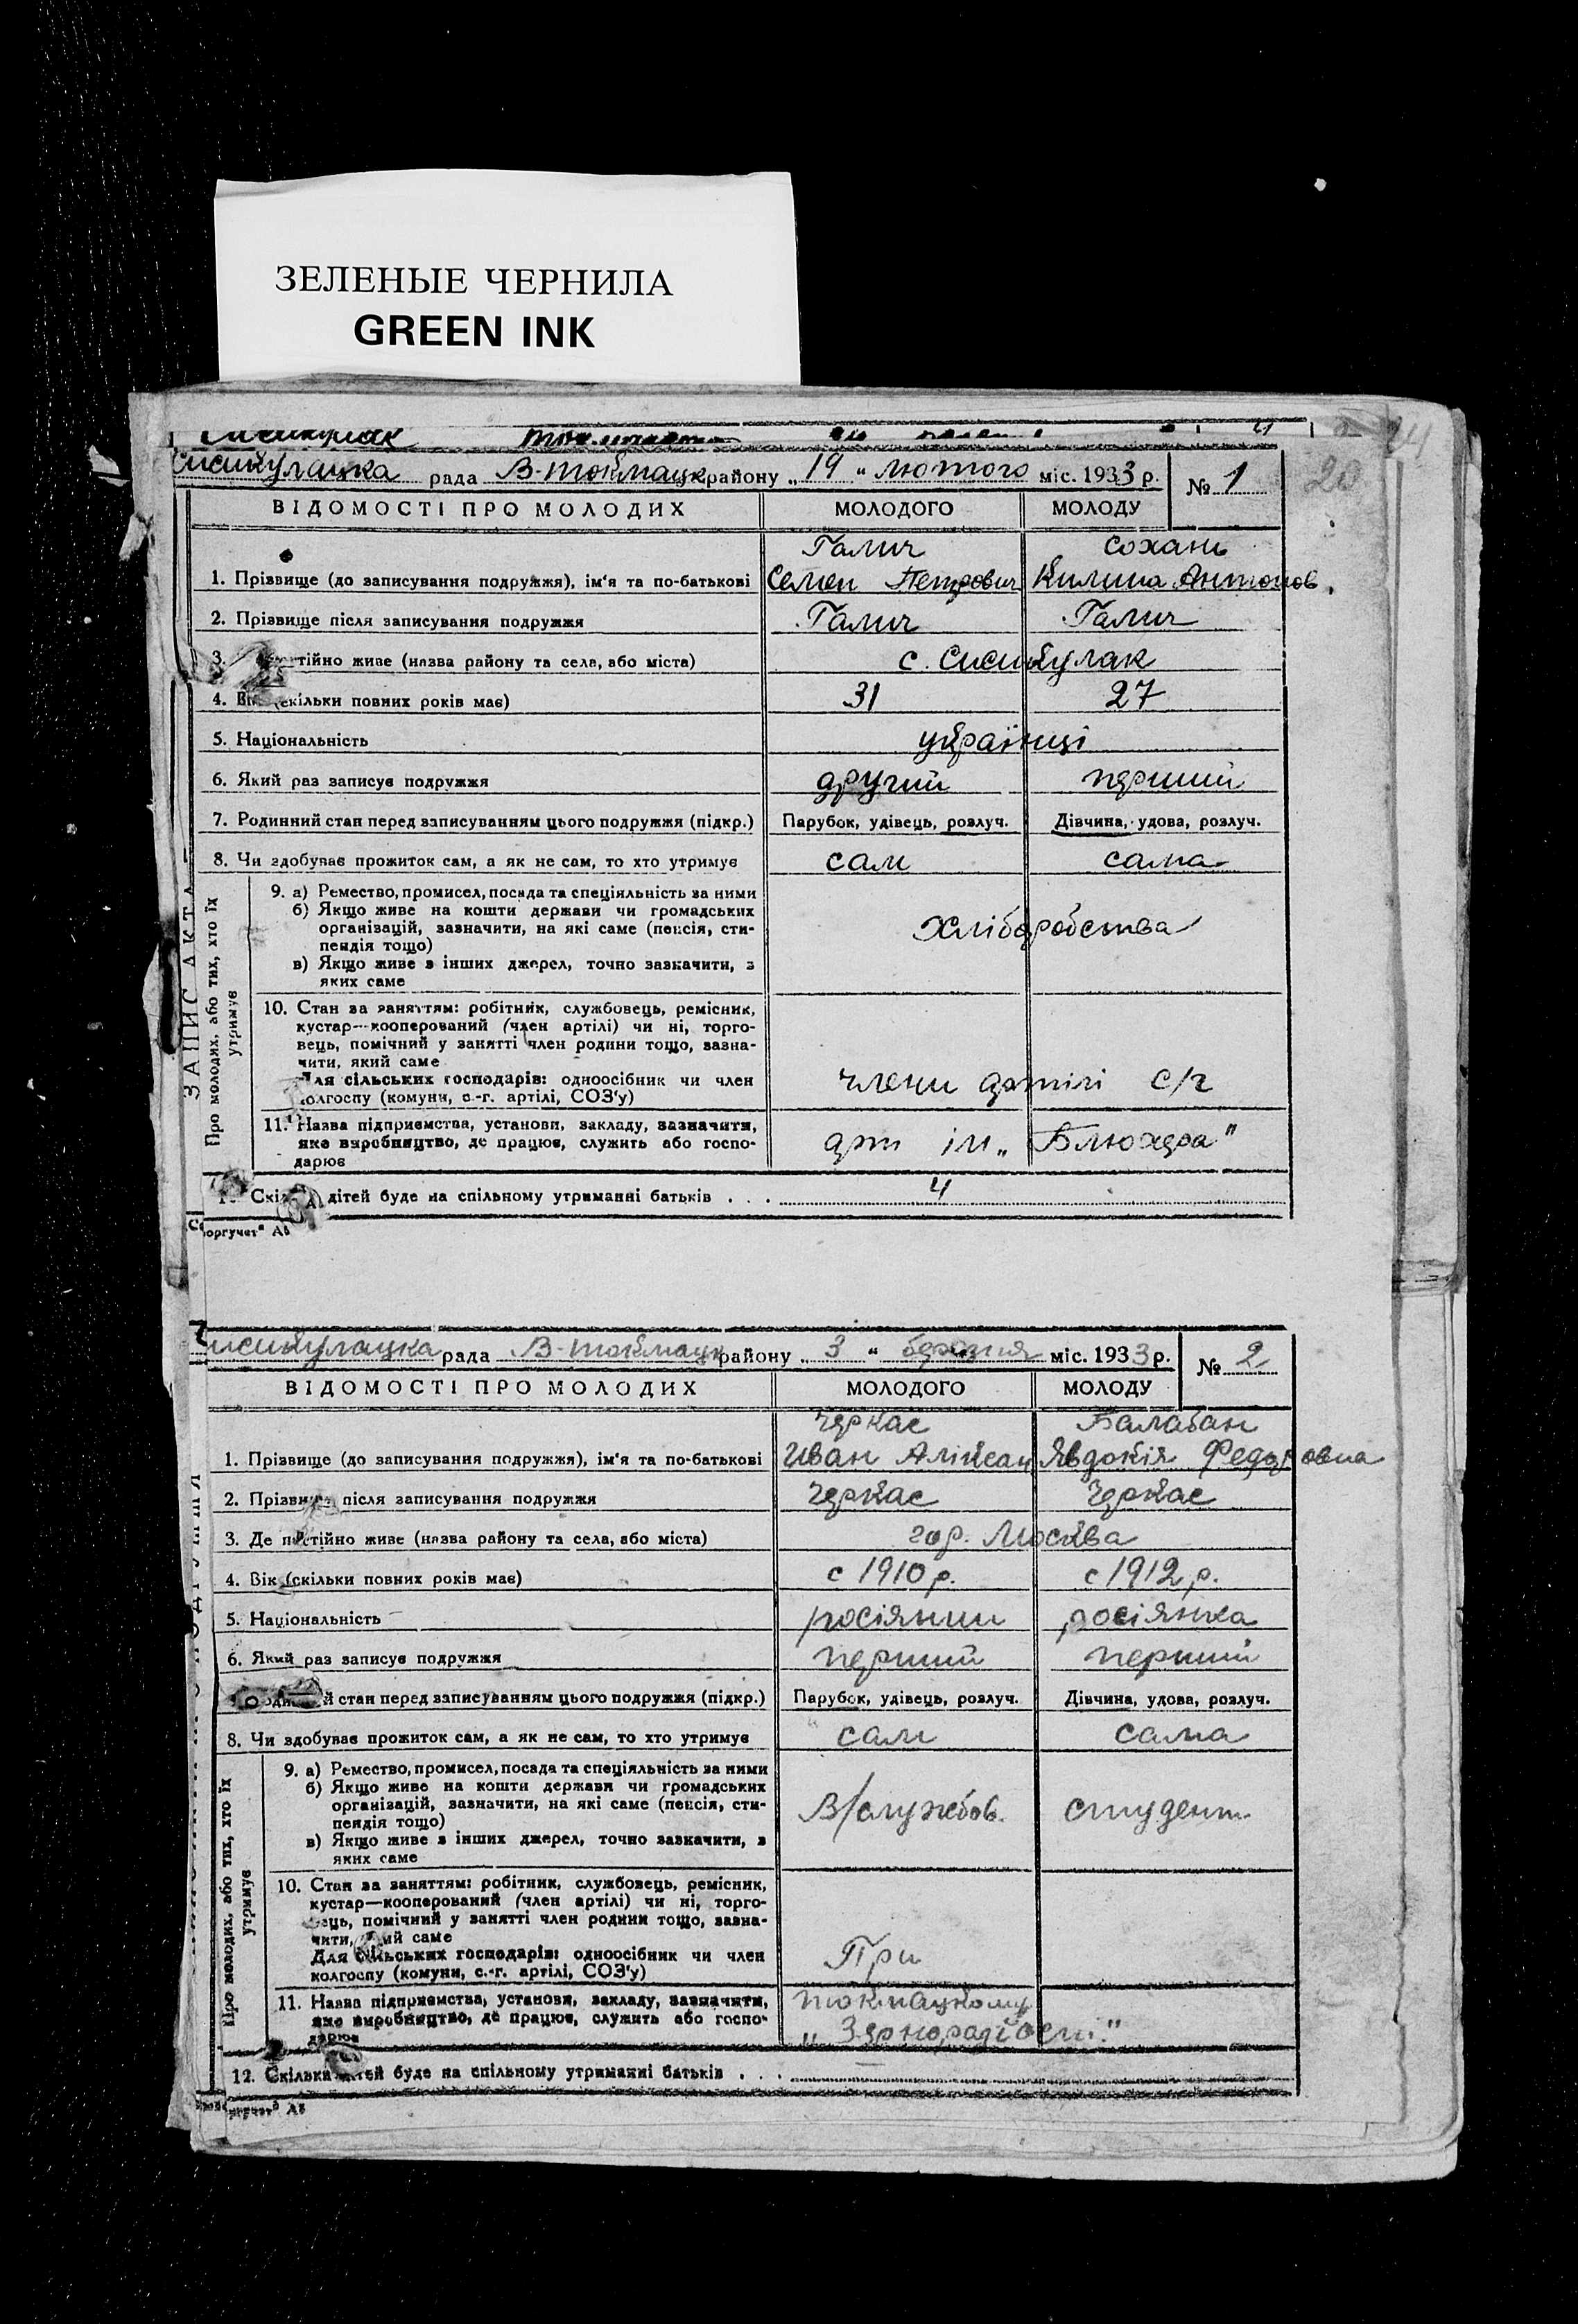 ЗЕЛЕНЫЕ ЧЕРНИЛА
GREEN INK
20
Сисикулацка рада В-токмацк району „19“ лютого міс. 1933 р. № 1
ВІДОМОСТІ ПРО МОЛОДИХ МОЛОДОГО МОЛОДУ
Галич Сохань
1. Прізвище (до записування подружжя), ім'я та по-батькові Семен Петрович Килина Антонов.
2. Прізвище після записування подружжя Галич Галич
3. тійно живе (назва району та села, або міста) с. Сисикулак
4. Вік (скільки повних років має) 31 27
5. Національність українці
6. Який раз записує подружжя другий перший
7. Родинний стан перед записуванням цього подружжя (підкр.) Парубок, удівець, розлуч. Дівчина, удова, розлуч.
8. Чи здобуває прожиток сам, а як не сам, то хто утримує сам сама
ЗАПИС АКТА
Про молодих, або тих, хто їх утримує
9. а) Ремество, промисел, посада та спеціяльність за ними
б) Якщо живе на кошти держави чи громадських
організацій, зазначити, на які саме (пенсія, сти-
пендія тощо) хліборобства
в) Якщо живе з інших джерел, точно зазначити, з
яких саме
10. Стан за заняттям: робітник, службовець, ремісник,
кустар—кооперований (член артілі) чи ні, торго-
вець, помічний у занятті член родини тощо, зазна-
чити, який саме
Для сільських господарів: одноосібник чи член члени артілі с/г
колгоспу (комуни, с.-г. артілі, СОЗ'у)
11. Назва підприємства, установи, закладу, зазначити,
яке виробництво, де працює, служить або госпо- арт ім „Блюхера"
дарює
дітей буде на спільному утриманні батьків . . . 4
оргучет" Ав
Сисикулацка рада В-токмацк району „3“ березня міс. 1933 р. № 2
ВІДОМОСТІ ПРО МОЛОДИХ МОЛОДОГО МОЛОДУ
Черкас Балабан
1. Прізвище (до записування подружжя), ім'я та по-батькові Иван Аліксан Явдокія Федоровна
2. Прізвище після записування подружжя Черкас Черкас
3. Де постійно живе (назва району та села, або міста) гор. Москва
4. Вік (скільки повних років має) с 1910 р. с 1912 р.
5. Національність росіянин росіянка
6. Який раз записує подружжя перший перший
стан перед записуванням цього подружжя (підкр.) Парубок, удівець, розлуч. Дівчина, удова, розлуч.
8. Чи здобуває прожиток сам, а як не сам, то хто утримує сам сама
Про молодих, або тих, хто їх утримує
9. а) Ремество, промисел, посада та спеціяльність за ними
б) Якщо живе на кошти держави чи громадських
організацій, зазначити, на які саме (пенсія, сти- В/службов. студент.
пендія тощо)
в) Якщо живе з інших джерел, точно зазначити, з
яких саме
10. Стан за заняттям: робітник, службовець, ремісник,
кустар—кооперований (член артілі) чи ні, торго-
вець, помічний у занятті член родини тощо, зазна-
чити, який саме
Для сільських господарів: одноосібник чи член При
колгоспу (комуни, с.-г. артілі, СОЗ'у)
11. Назва підприємства, установи, закладу, зазначити, токмацкому
яке виробництво, де працює, служить або госпо-
дарює
12. Скільки дітей буде на спільному утриманні батьків . . .
ргучет" Ав